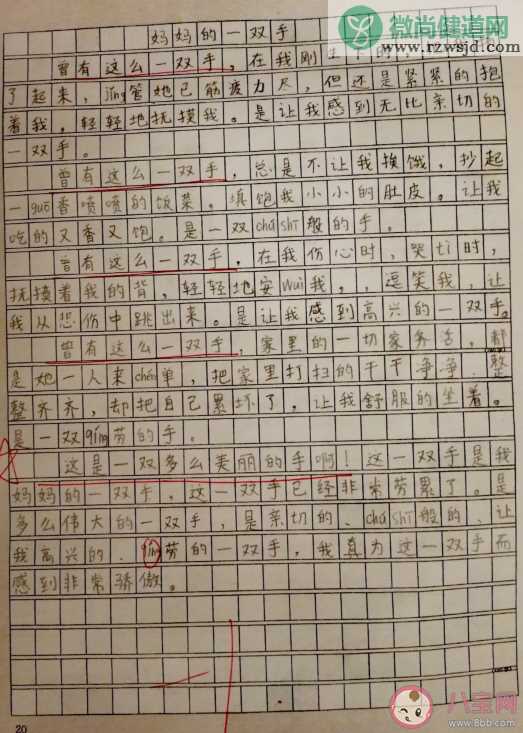 微尚健道网
www.rzwsjd.com
妈妈的一双手
曾有这么一双手，在我刚生下时，
了起来，jǐng管她已筋疲力尽，但还是紧紧的抱
着我，轻轻地抚摸我。是让我感到无比亲切的
一双手。
曾有这么一双手，总是不让我挨饿，抄起
一guō香喷喷的饭菜。填饱我小小的肚皮。让我
吃的又香又饱。是一双chúshī般的手。
曾有这么一双手，在我伤心时，哭tì时，
抚摸着我的背，轻轻地安wuì我，，逗笑我，让
我从悲伤中跳出来。是让我感到高兴的一双手。
曾有这么一双手，家里的一切家务活，都
是她一人来chéng单，把家里打扫的干干净净、整
整齐齐，却把自己累坏了。让我舒服的坐着。
是一双qíng劳的手。
这是一双多么美丽的手啊！这一双手是我
妈妈的一双手，这一双手已经非常劳累了。是
多么伟大的一双手，是亲切的、chúshī般的、让
我高兴的、qíng劳的一双手，我真为这一双手而
感到非常骄傲。
20
八宝网
www.8bb.com